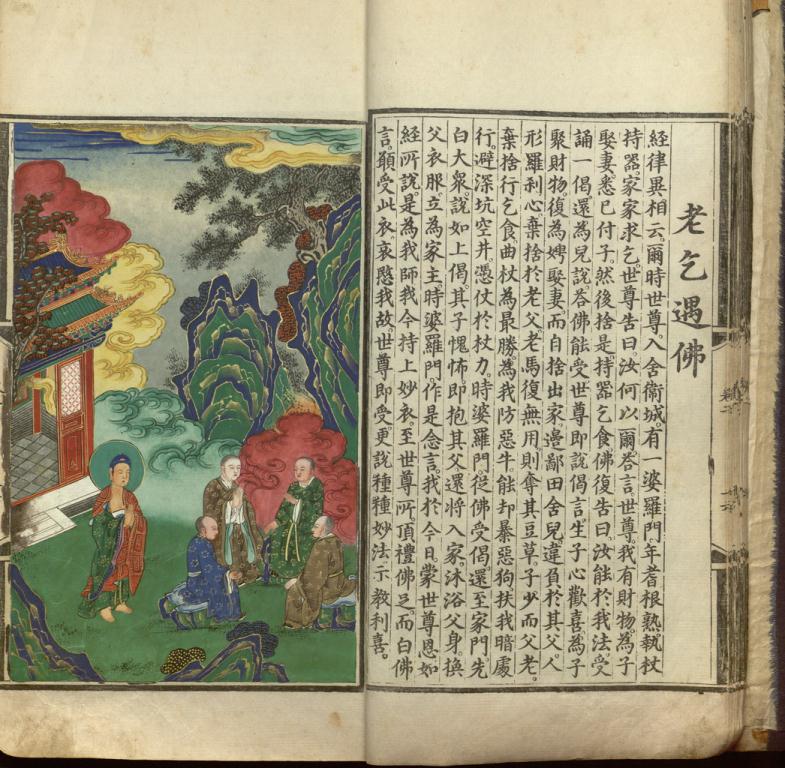 老乞遇佛
經律異相云。爾時世尊。入舍衞城。有一婆羅門。年耆根熟。執杖
持器。家家求乞。世尊告曰。汝何以爾。答言。世尊。我有財物。為子
娶妻。悉已付子。然後捨是。持器乞食。佛復告曰。汝能於我法。受
誦一偈。還為兒說。答佛能受。世尊即說偈言。生子心歡喜。為子
聚財物。復為娉娶妻。而自捨出家。邊鄙田舍兒。違負於其父。人
形羅刹心。棄捨於老父。老馬復無用。則奪其豆草。子少而父老。
棄捨行乞食。曲杖為最勝。為我防惡牛。能却暴惡狗。扶我暗處
行。避深坑空井。憑仗於杖力。時婆羅門。從佛受偈。還至家門。先
白大衆。說如上偈。其子愧怖。即抱其父。還將入家。沐浴父身。換
父衣服。立為家主。時婆羅門。作是念言。我於今日。蒙世尊恩。如
經所說。是為我師。我今持上妙衣。至世尊所。頂禮佛足。而白佛
言。願受此衣。哀愍我故。世尊即受。更說種種妙法。示教利喜。